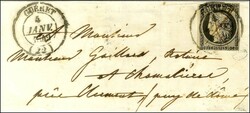 GUERET
4
JANV.
(22)
A Monsieur
Monsieur Gaillard Notaire
et Chamalières
près Clermont (puy de Dôme)